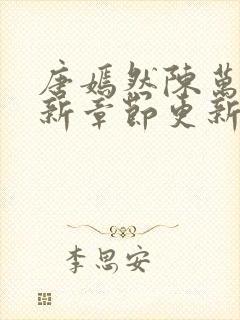 唐嫣然陳萬
新章節更新
李思安